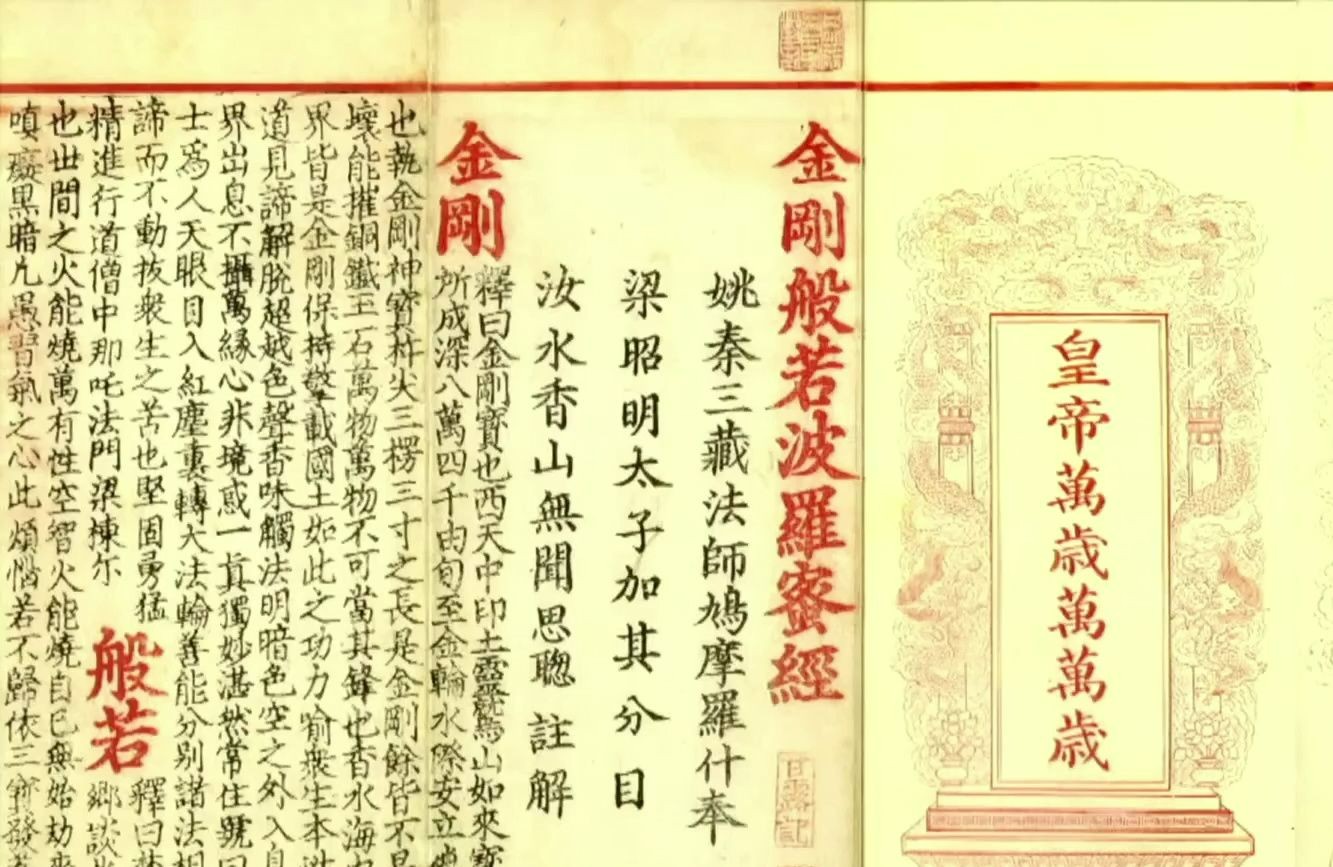 皇帝萬歲萬萬歲
金剛般若波羅蜜經
姚秦三藏法師鳩摩羅什奉
梁昭明太子加其分目
汝水香山無聞思聰 註解
金剛
釋曰金剛寶也西天中印土靈鷲山如來寶
所成深八萬四千由旬至金輪水際安立
也執金剛神寶杵尖三楞三寸之長是金剛餘皆不是
壞能摧銅鐵玉石萬物萬物不可當其鋒也香水海
界皆是金剛保持擎載國土如此之功力喻衆生本
道見諦解脫超越色聲香味觸法明暗色空之外入
界出息不攝萬緣心非境惑一真獨妙湛然常住號曰
士爲人天眼目入紅塵裏轉大法輪善能分別諸法相
諦而不動拔衆生之苦也堅固勇猛
精進行道僧中那吒法門梁棟尔
般若
釋曰
鄉談
也世間之火能燒萬有性空智火能燒自己無始劫來
嗔癡黑暗凡愚習氣之心此煩惱若不歸依三寶發